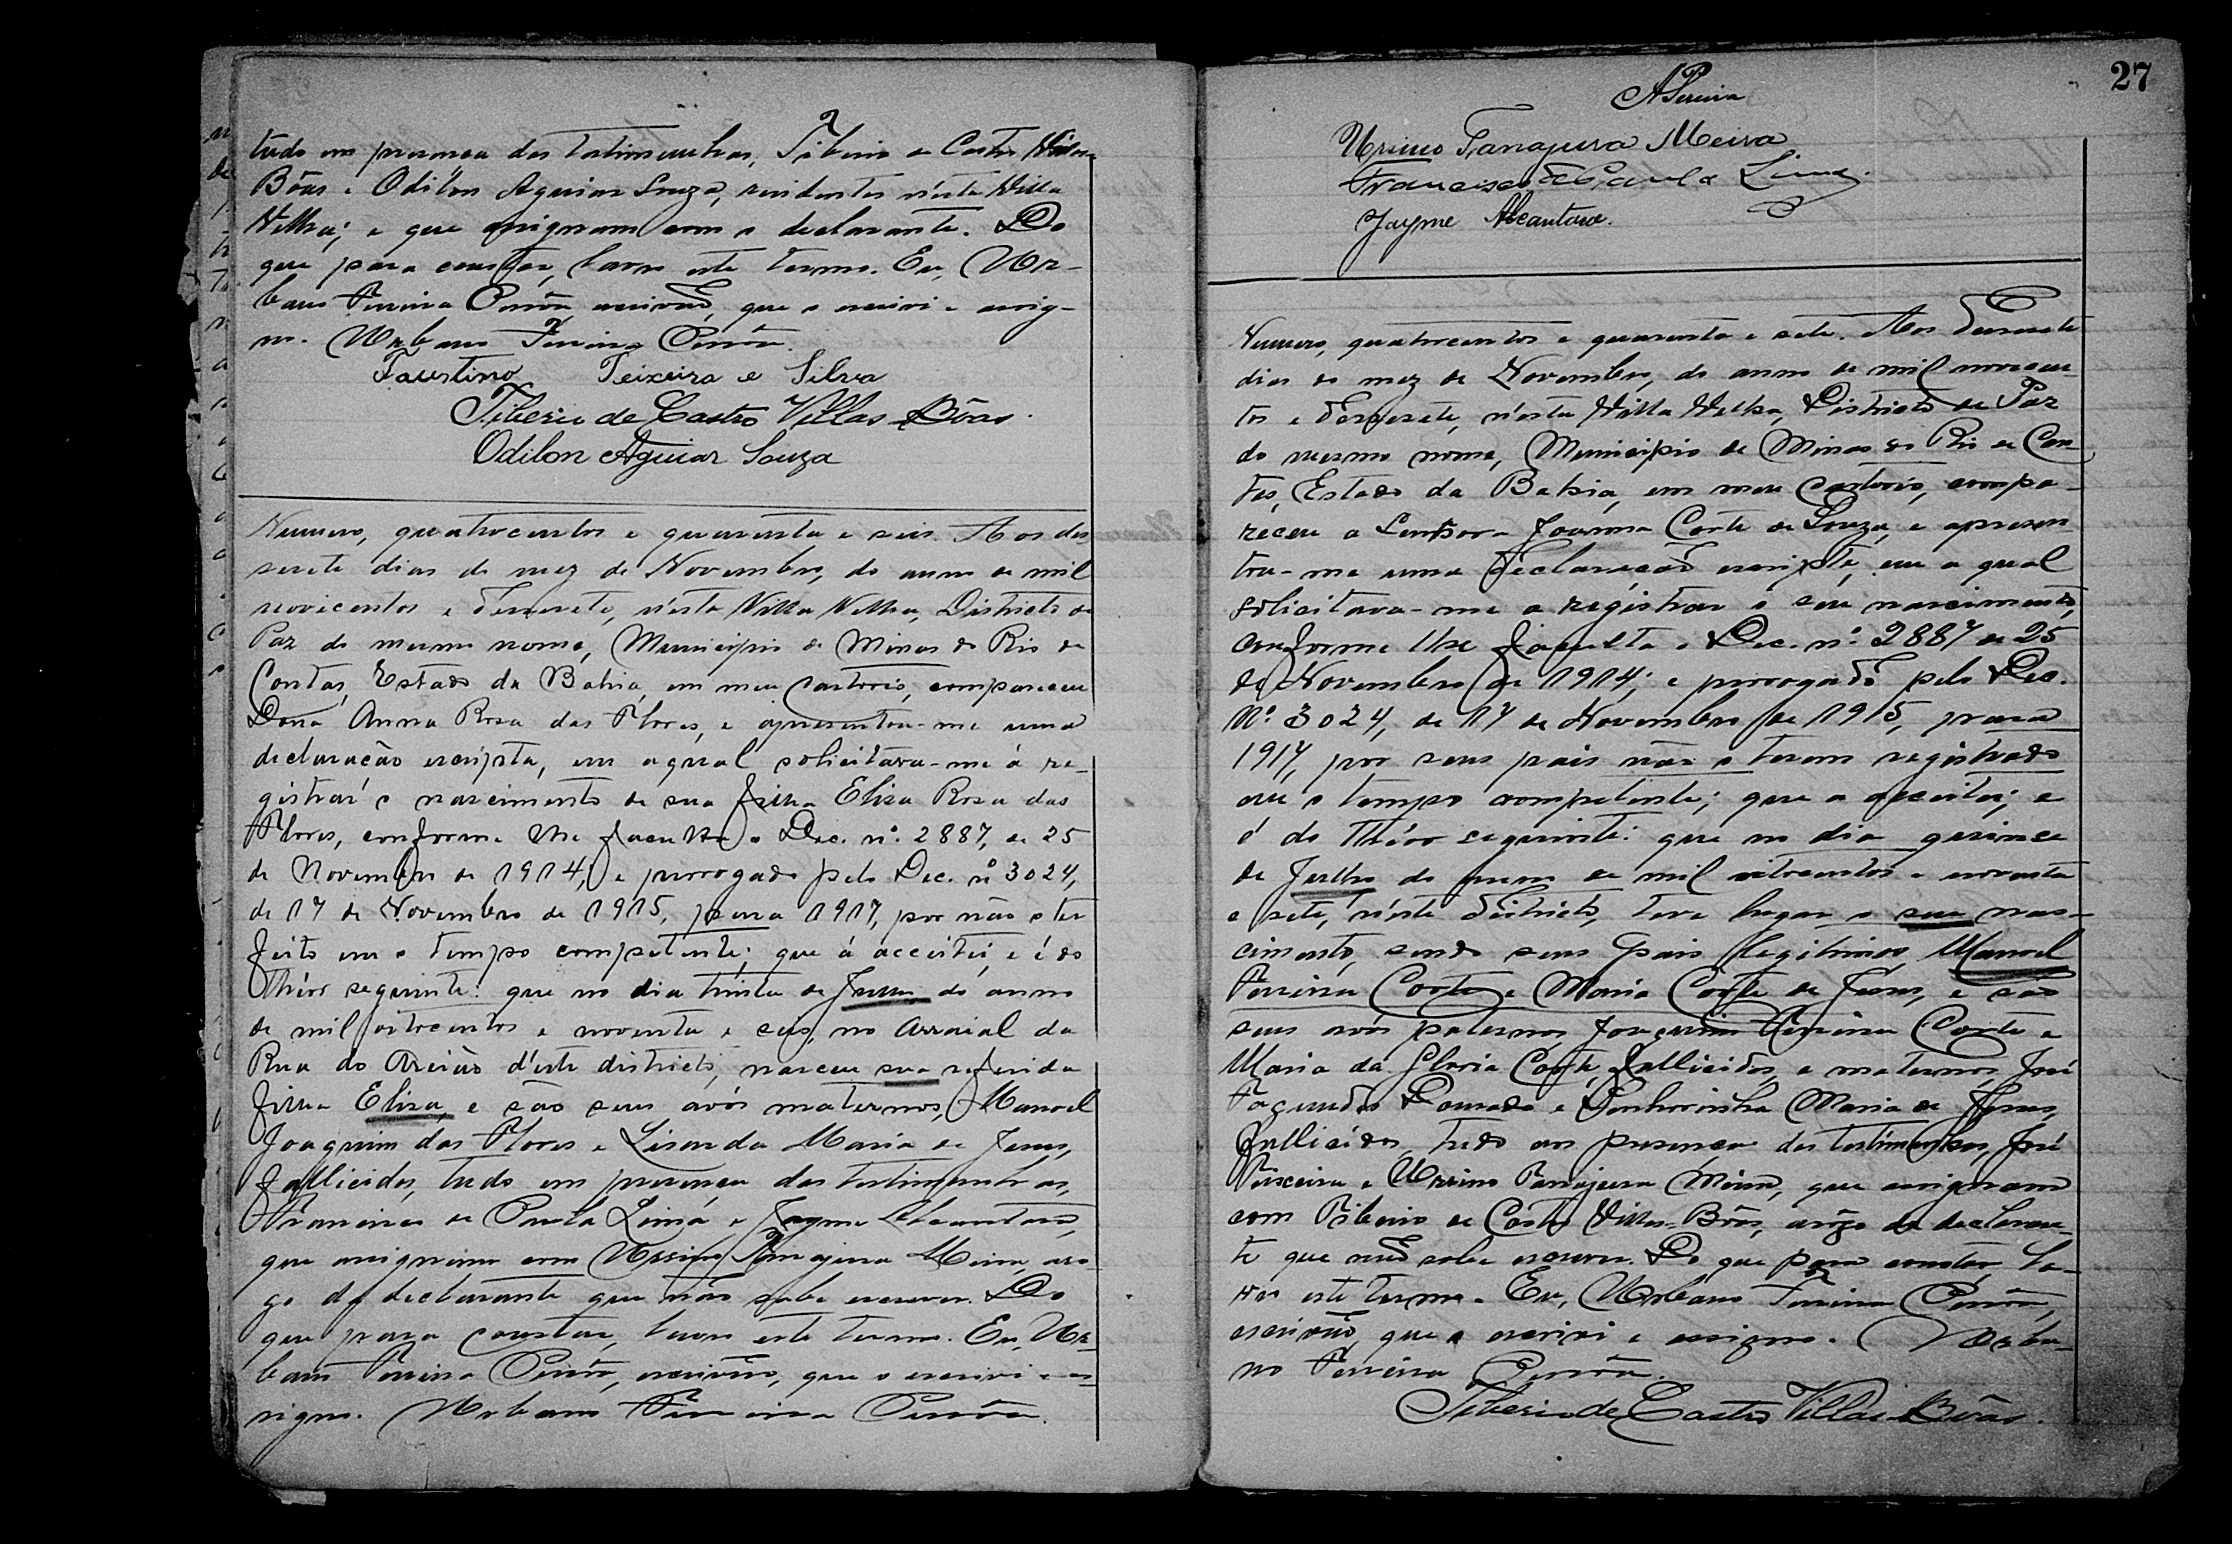 tudo em presença das testimunhas, Tiberio de Castro Villas
Bôas e Odilon Aguiar Souza, residentes n'esta Villa
Velha; e que assignam com o declarante. Do
que para constar, lavro este termo. Eu, Ur-
bano Pereira escrivão, que o escrevi e assig-
no. Urbano Pereira
Faustino Teixeira e Silva
Tiberio de Castro Villas Bôas.
Odilon Aguiar Souza
Numero, quatrocentos e quarenta e seis. Aos des
sesete dias do mez de Novembro, do anno de mil
novicentos e desesete, n'esta Villa Velha, Districto de
Paz do mesmo nome, Municipio de Minas do Rio de
Contas, Estado da Bahia, em meu cartorio, compareceu
Dona Anna Rosa das Flores, e apresentou-me uma
declaração escripta, em a qual solicitava-me á re-
gistrar o nascimento de sua filha Elisa Rosa das
Flores, conforme lhe faculta o Dec. nº. 2887, de 25
de Novembro de 1914, e prorogado pelo Dec. nº 3024,
de 17 de Novembro de 1915, para 1917, por não o ter
feito em o tempo competente; que á acceitei, e é do
theôr seguinte: que no dia trinta de Junho do anno
de mil oitocentos e noventa e seis, no arraial da
Rua do Areião d'este districto, nasceu sua referida
filha Elisa, e são seus avós maternos, Manoel
Joaquim das Flores e Lisarda Maria de Jesus,
fallicidos, tudo em presença das testimunhas,
Francisco de Paula Lima e Jayme Alcantara,
que assignam com Ursino Tanajura Meira, aro-
go da declarante que não sabe escrever. Do
que para constar, lavro este termo. Eu, Ur-
bano Pereira escrivão, que o escrevi e as-
signo. Urbano Pereira
27
APereira
Ursino Tanajura Meira
Francisco de Paula Lima.
Jayme Alcantara.
Numero, quatrocentos e quarenta e sete. Aos desesete
dias do mez de Novembro, do anno de mil novecen-
tos e desesete, n'esta Villa Velha, Districto de Paz
do mesmo nome, Municipio de Minas do Rio de Con-
tas, Estado da Bahia, em meu cartorio, compa-
receu a Senhora Joanna Corte de Souza, e apresen-
tou-me uma declaração escripta, em a qual
solicitava-me a registrar o seu nascimento,
conforme lhe faculta o Dec. nº. 2887 de 25
de Novembro de 1914; e prorogado pelo Dec.
Nº. 3024, de 17 de Novembro de 1915, para
1917, por seus pais não o terem registrado
em o tempo competente; que a acceitei; e
é do theôr seguinte: que no dia quinze
de Julho do anno de mil oitocentos e noventa
e sete, n'este districto, teve lugar o seu nas-
cimento, sendo seus pais legitimos, Manoel
Pereira Corte e Maria Corte de Jesus, e são
seus avós paternos, Joaquim Pereira Corte e
Maria da Gloria Corte, fallicidos, e maternos, José
Fagundes Dourado e Senhorinha Maria de Jesus,
fallicidos, tudo em presença das testimunhas, José
Teixeira e Ursino Tanajura Meira, que assignam
com Tiberio de Castro Villas-Bôas, arôgo da declaran-
te que não sabe escrever. Do que para constar, la-
vro este termo. Eu, Urbano Pereira
escrivão, que o escrevi e assigno. Urba-
no Pereira
Tiberio de Castro Villas-Bôas.